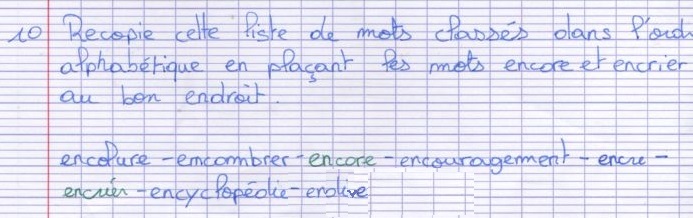 10 Recopie cette liste de mots classés dans l'ord
alphabétique en plaçant les mots encore et encrier
au bon endroit.
encolure - encombrer - encore - encouragement - encre -
encrier - encyclopédie - endive